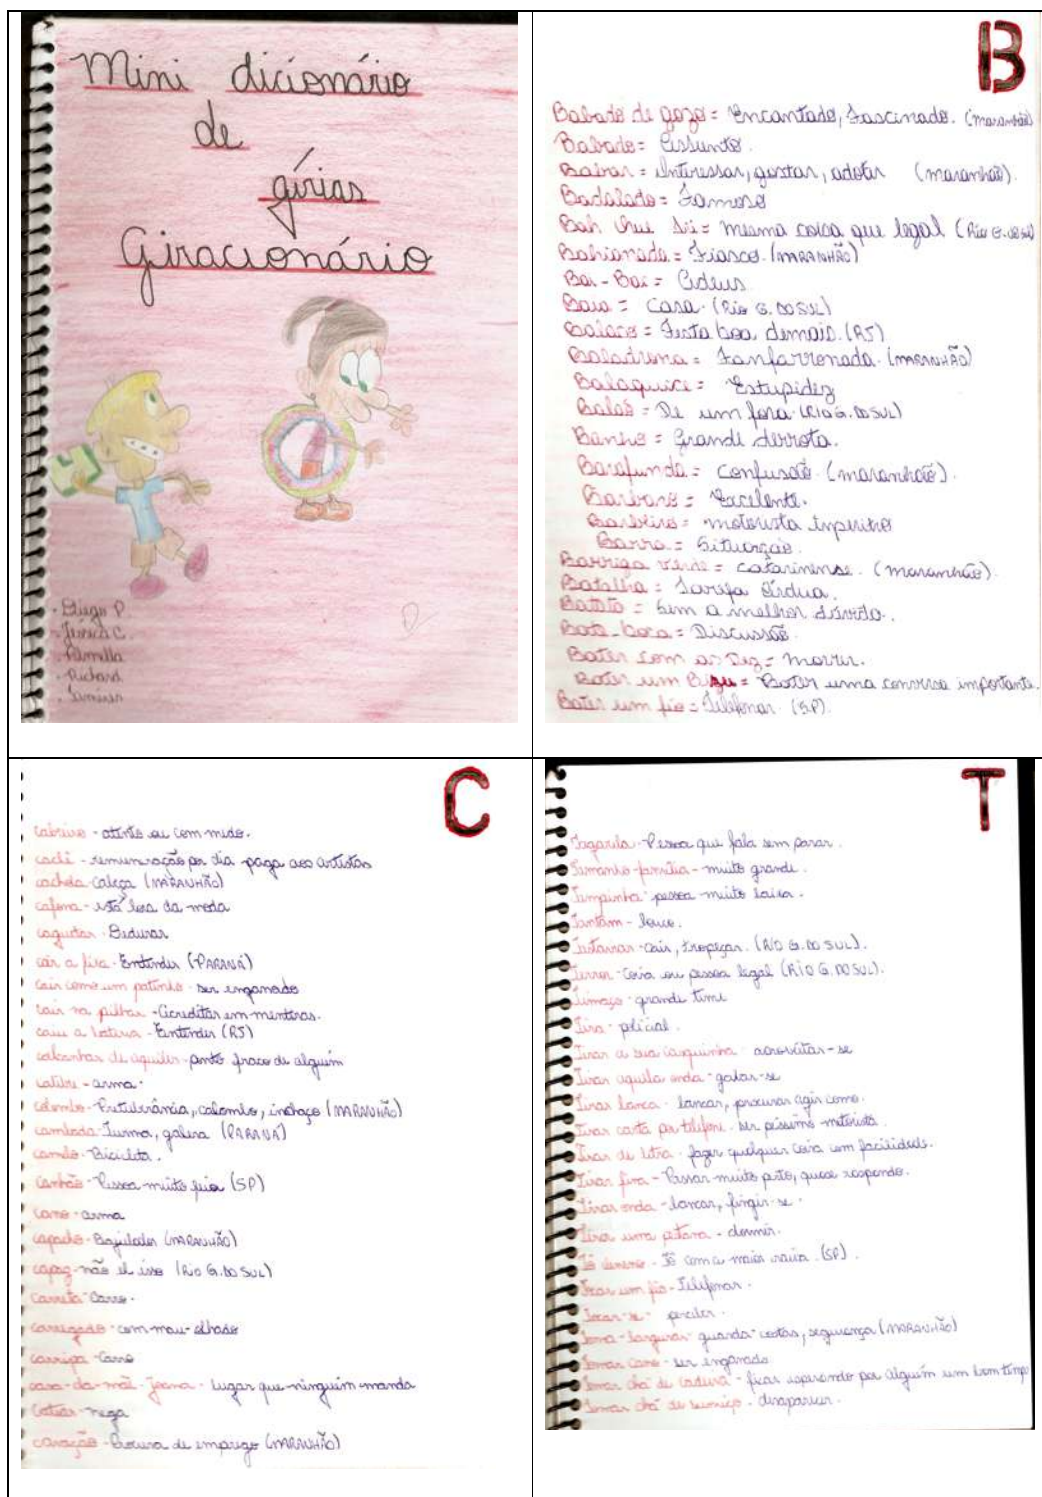 Mini dicionário
de
gírias
Giracionário
. Diego P.
. Jéssica C.
. Pamella
. Richard
B
Babado de gozo = Encantado, Fascinado. (maranhão)
Babado = Assunto.
Babar = Interessar, gostar, adotar (maranhão).
Badalado = Famoso
Bah chui tii = mesma coisa que legal (Rio G. do Sul)
Bahianada = Fiasco. (MARANHÃO)
Bai-Bai = Adeus
Baia = Casa. (Rio G. do SUL)
Balaco = Festa boa demais. (RJ)
Baladrona = Fanfarronada. (MARANHÃO)
Balaquice = Estupidez
Balão = De um fora. (RIO G. do SUL)
Banho = Grande derrota.
Barafunda = Confusão. (maranhão).
Barbaro = Excelente.
Barbeiro = motorista inperito
Barra = Situação.
Barriga verde = catarinense. (maranhão).
Batalha = Tarefa árdua.
Batata = Sem a melhor dúvida.
Bate-boca = Discussão.
Bater com as Dez = morrer.
Bater um Bizu = Bater uma conversa importante.
Bater um fio = Telefonar. (SP).
C
Cabreiro - atento ou com medo.
cachê - remuneração por dia paga aos artistas
cachola - cabeça (MARANHÃO)
cafona - está fora da moda
caguetar - Dedurar
cair a ficha - Entender (PARANÁ)
cair como um patinho - ser enganado
cair na pilha - Acreditar em mentiras.
caiu a bateria - Entender (RJ)
calcanhar de aquiles - ponto fraco de alguém
calibre - arma.
calombo - Protuberância, calombo, inchaço (MARANHÃO)
cambada - Turma, galera (PARANÁ)
camelo - Bicicleta.
canhão - Pessoa muito feia (SP)
cano - arma
capacho - Bajulador (MARANHÃO)
capaz - não é isso (Rio G. do Sul)
carreta - Carro.
carregado - com mau-olhado
carripa - Carro
casa-da-mãe-Joana - lugar que ninguém manda
cavação - Procura de emprego (MARANHÃO)
T
Tagarela - Pessoa que fala sem parar.
Tamanho família - muito grande.
Tampinha - pessoa muito baixa.
Tantam - louco.
- cair, tropeçar. (RIO G. DO SUL).
- Coisa ou pessoa legal (RIO G. DO SUL).
Timaço - grande time
Tira - policial.
Tirar a sua casquinha - aproveitar-se
Tirar aquela onda - gabar-se
Tirar banca - bancar, procurar agir como.
Tirar carta por telefone - ser péssimo motorista
Tirar de letra - fazer qualquer coisa com facilidade.
Tirar fina - Passar muito perto, quase raspando.
Tirar onda - bancar, fingir-se.
Tirar uma pestana - dormir.
Tô - Tô com a maior raiva. (SP).
Tocar um fio - Telefonar.
Tocar-se - perceber.
Toma-larguras - guarda-costas, segurança (MARANHÃO)
Tomar cano - ser enganado
Tomar chá de cadeira - ficar esperando por alguém um bom tempo
Tomar chá de sumiço - desaparecer.